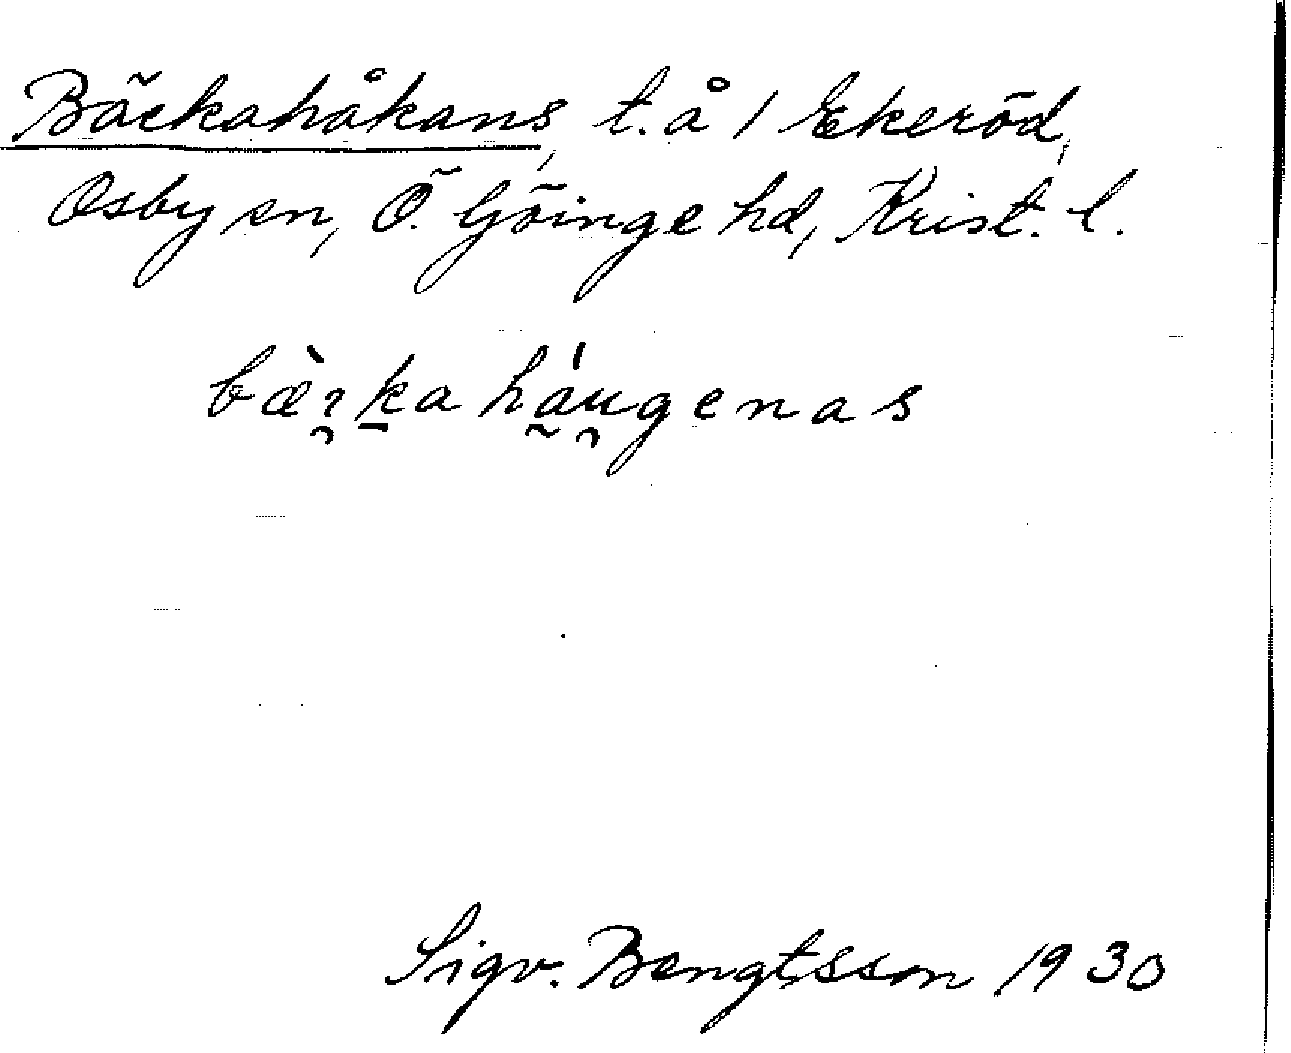 Bäckahåkans, t. å 1 Ekeröd,
Osby sn, Ö. Göinge hd, Krist. l.
bæ̀ɿ̯ḵa há̰u̯genas
Sigv. Bengtsson 1930